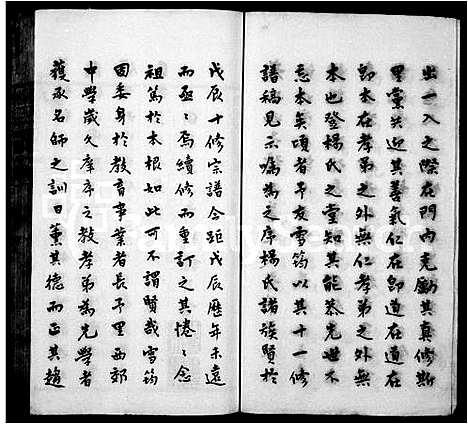 出一入之際在門内克勵其真修斯
里黨共迎其善氣仁在即道在道在
即本在孝弟之外無仁孝弟之外無
本也登楊氏之堂知其能慕先世不
忘本矣頃者予友雪筠以其十一修
譜稿見示囑為之序楊氏諸族賢於
戊辰十修宗譜今距戊辰歷年未遠
而亟亟焉續修而重訂之其惓惓念
祖篤於本根如此可不謂賢哉雪筠
固委身於教育事業者長予里西郊
中學歲久庠序之教孝弟為先學者
獲承名師之訓日薰其德而正其趨